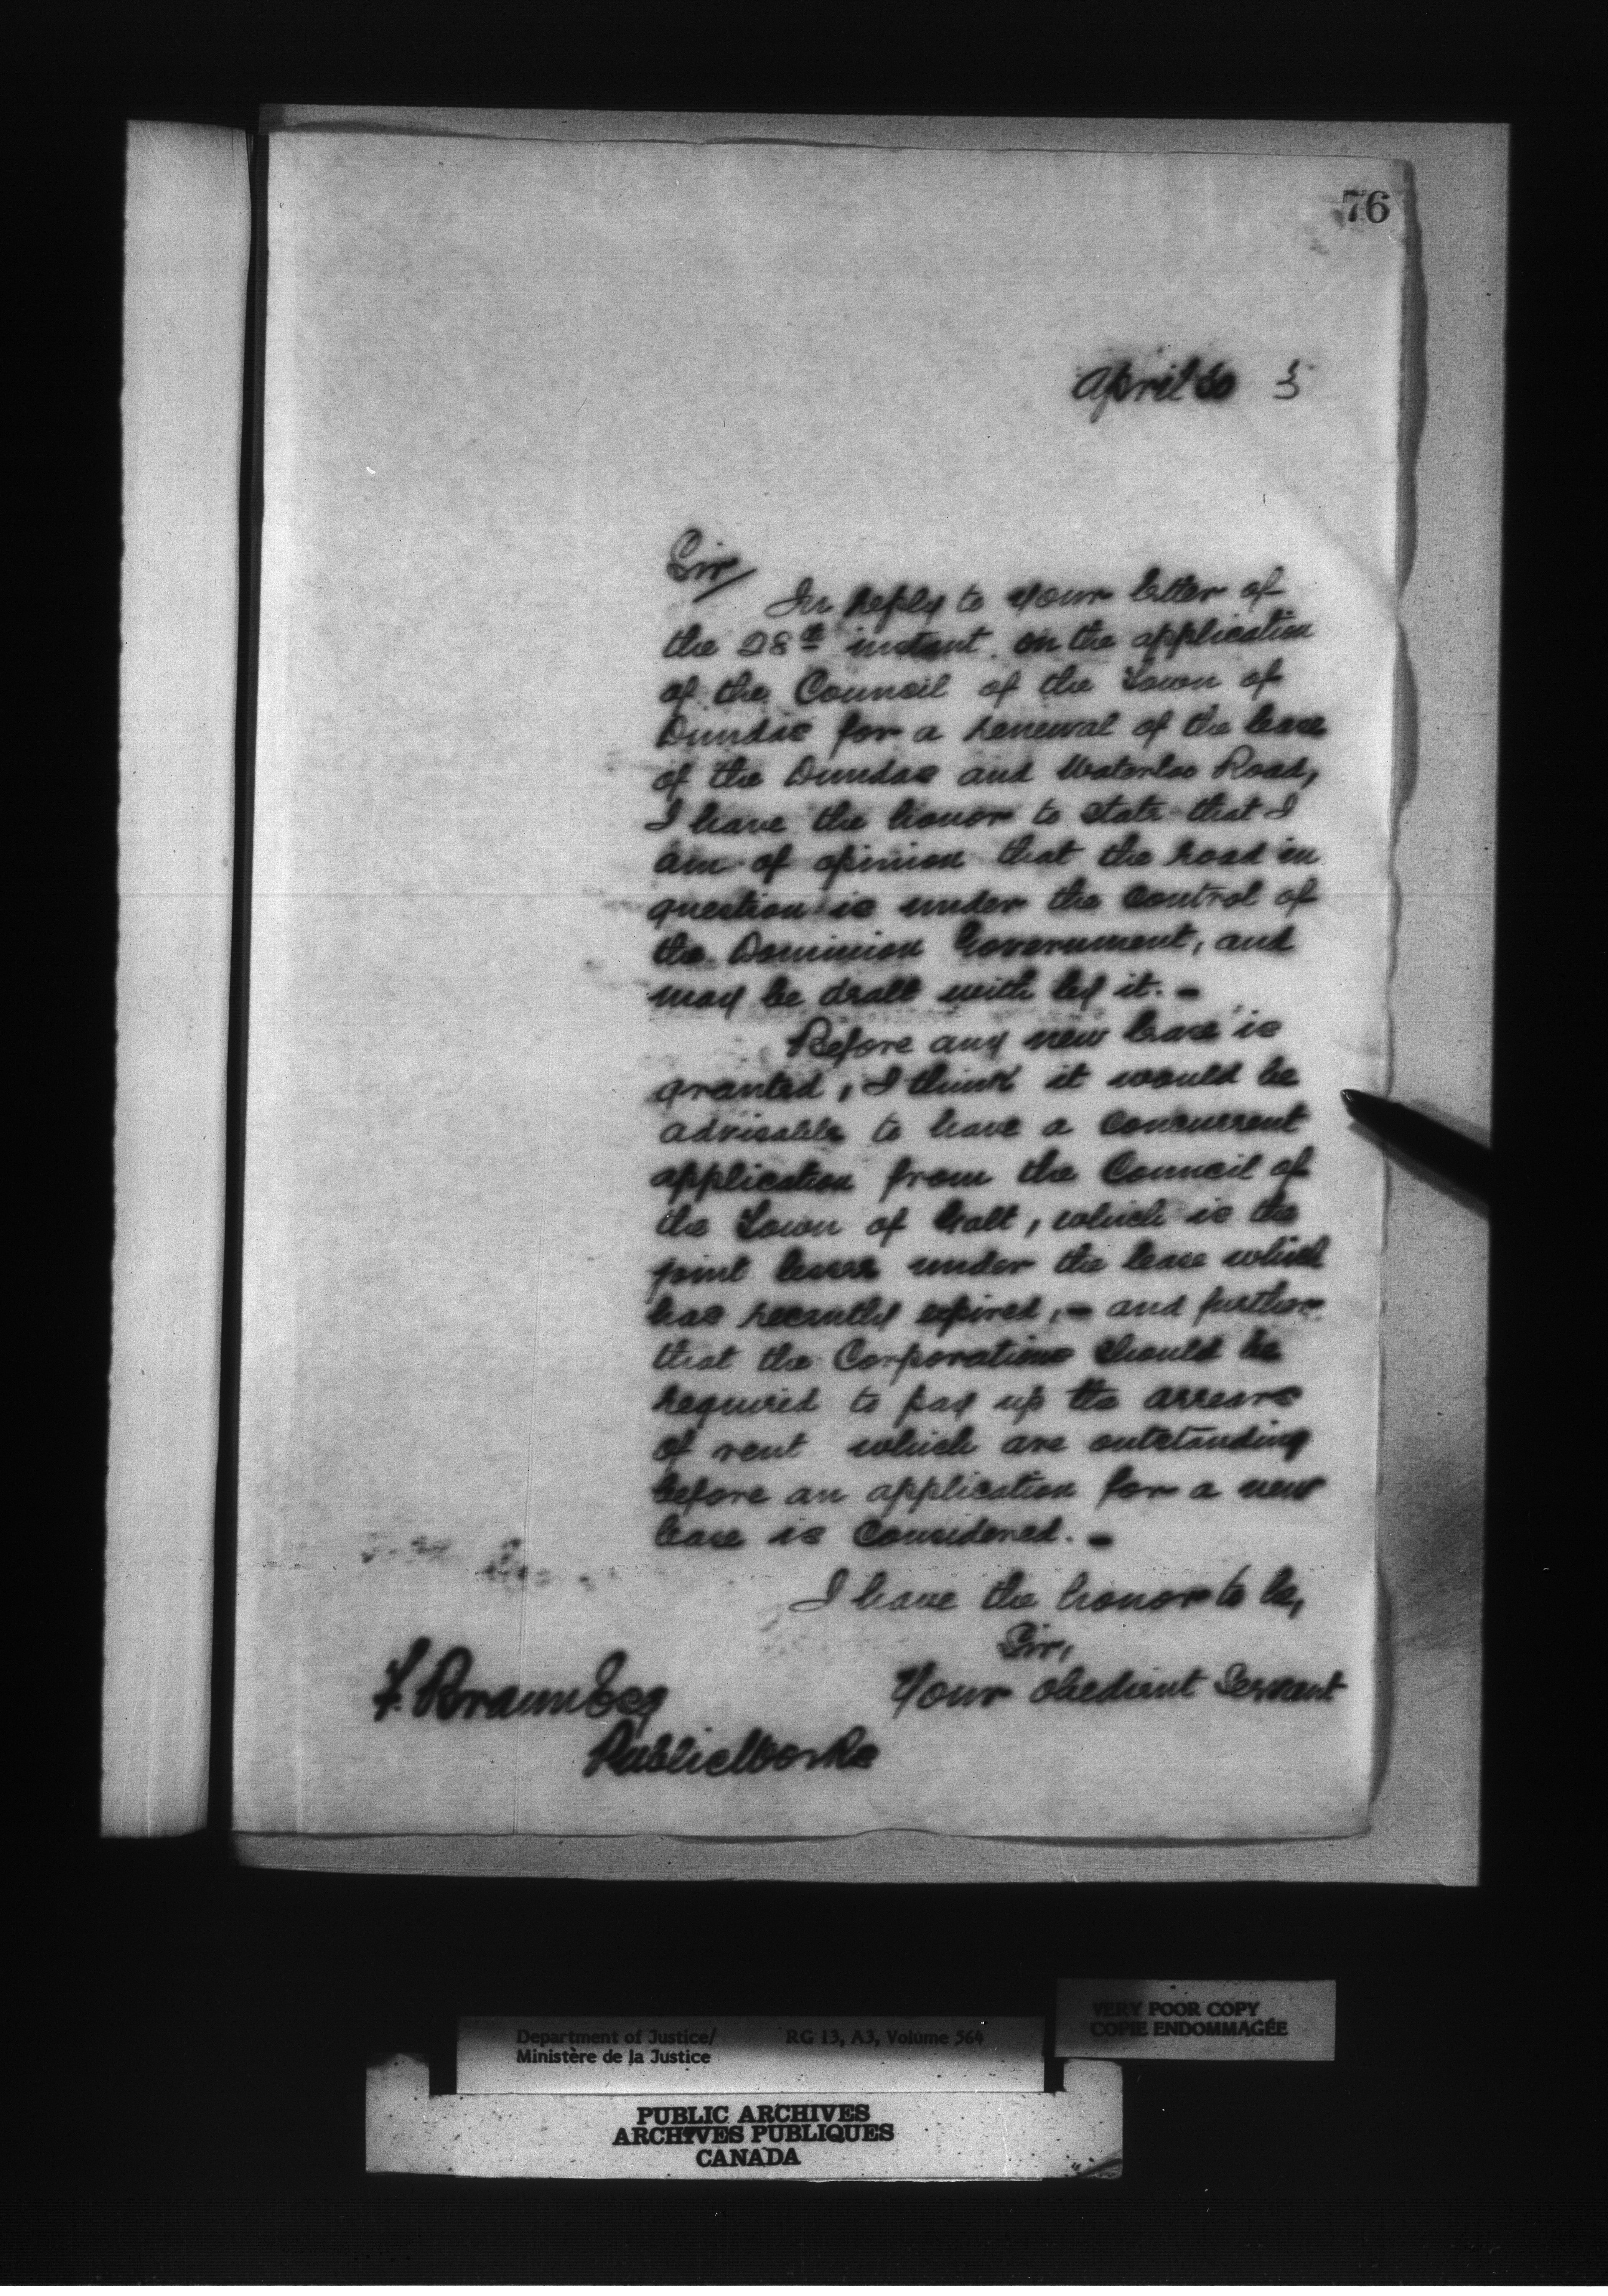 76
April 30 3
Sir
In reply to your letter of
the 28th instant on the application
of the Council of the Town of
Dundas for a renewal of the lease
of the Dundas and Waterloo Road,
I have the honor to state that I
am of opinion that the road in
question is under the control of
the Dominion Government, and
may be dealt with by it. -
Before any new lease is
granted, I think it would be
advisable to have a concurrent
application from the Council of
the Town of Galt, which is the
joint lessee under the lease which
has recently expired, - and further
that the Corporations should be
required to pay up the arrears
of rent which are outstanding
before an application for a new
lease is considered. -
I have the honor to be,
Sir,
Your obedient Servant
F. Braun Esq
Public Works
VERY POOR COPY
COPIE ENDOMMAGÉE
Department of Justice/ RG 13, A3, Volume 564
Ministère de la Justice
PUBLIC ARCHIVES
ARCHIVES PUBLIQUES
CANADA